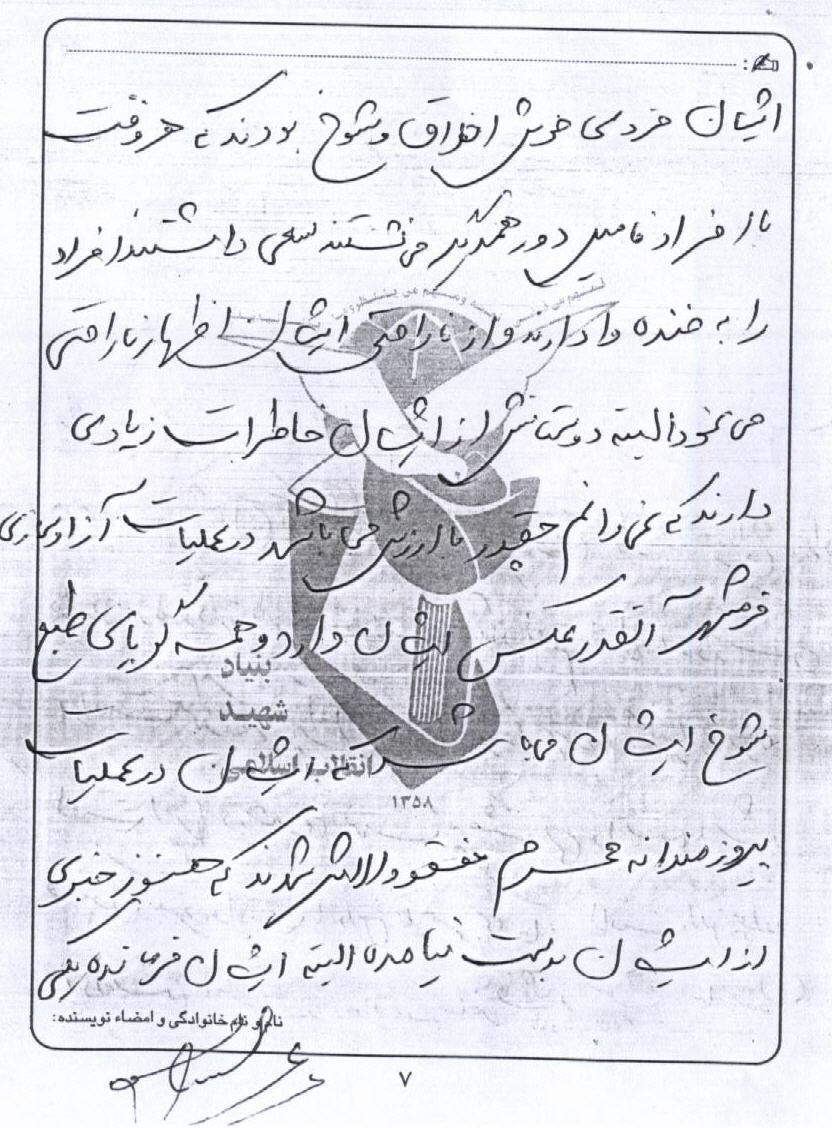 ایشان فردی خوش اخلاق و شوخ بودند که هر وقت
با افراد فامیل دور همدیگر می نشستند سعی داشتند افراد
را به خنده وا دارند و از ناراحتی ایشان اظهار ناراحتی
می نمود البته دوستانش از ایشان خاطرات زیادی
دارند که نمی دانم چقدر با ارزش می باشد در عملیات آزادسازی
خرمشهر آنقدر عکس ایشان دارد و همه گویای طبع
شوخ ایشان می باشد که ایشان در عملیات
پیروزمندانه محرم مفقودالاثر شدند که هنوز خبری
از ایشان بدست نیامده البته ایشان فرمانده
بنیاد
شهید
انقلاب اسلامی
۱۳۵۸
نام و نام خانوادگی و امضاء نویسنده:
۷